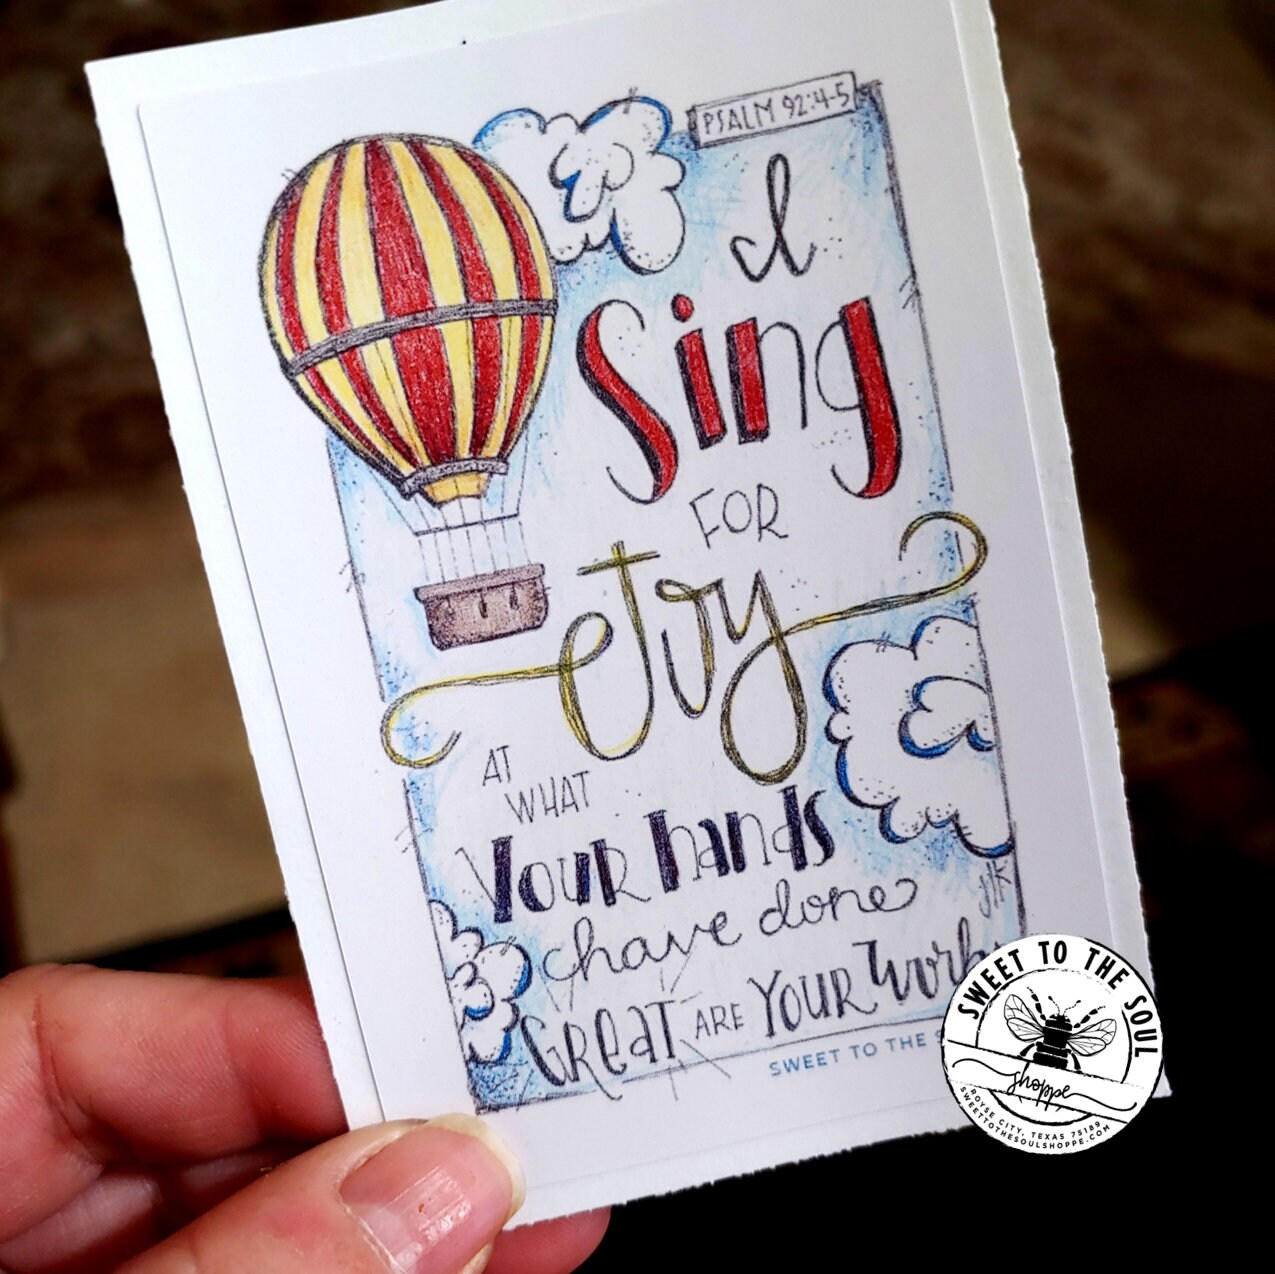 PSALM 92:4-5
I
Sing
FOR
Joy
AT
WHAT
Your hands
have done
GReaT ARE YOUR Works
JK
SWEET TO THE
SWEET TO THE SOUL
shoppe
ROYSE CITY, TEXAS 75189
SWEETTOTHESOULSHOPPE.COM